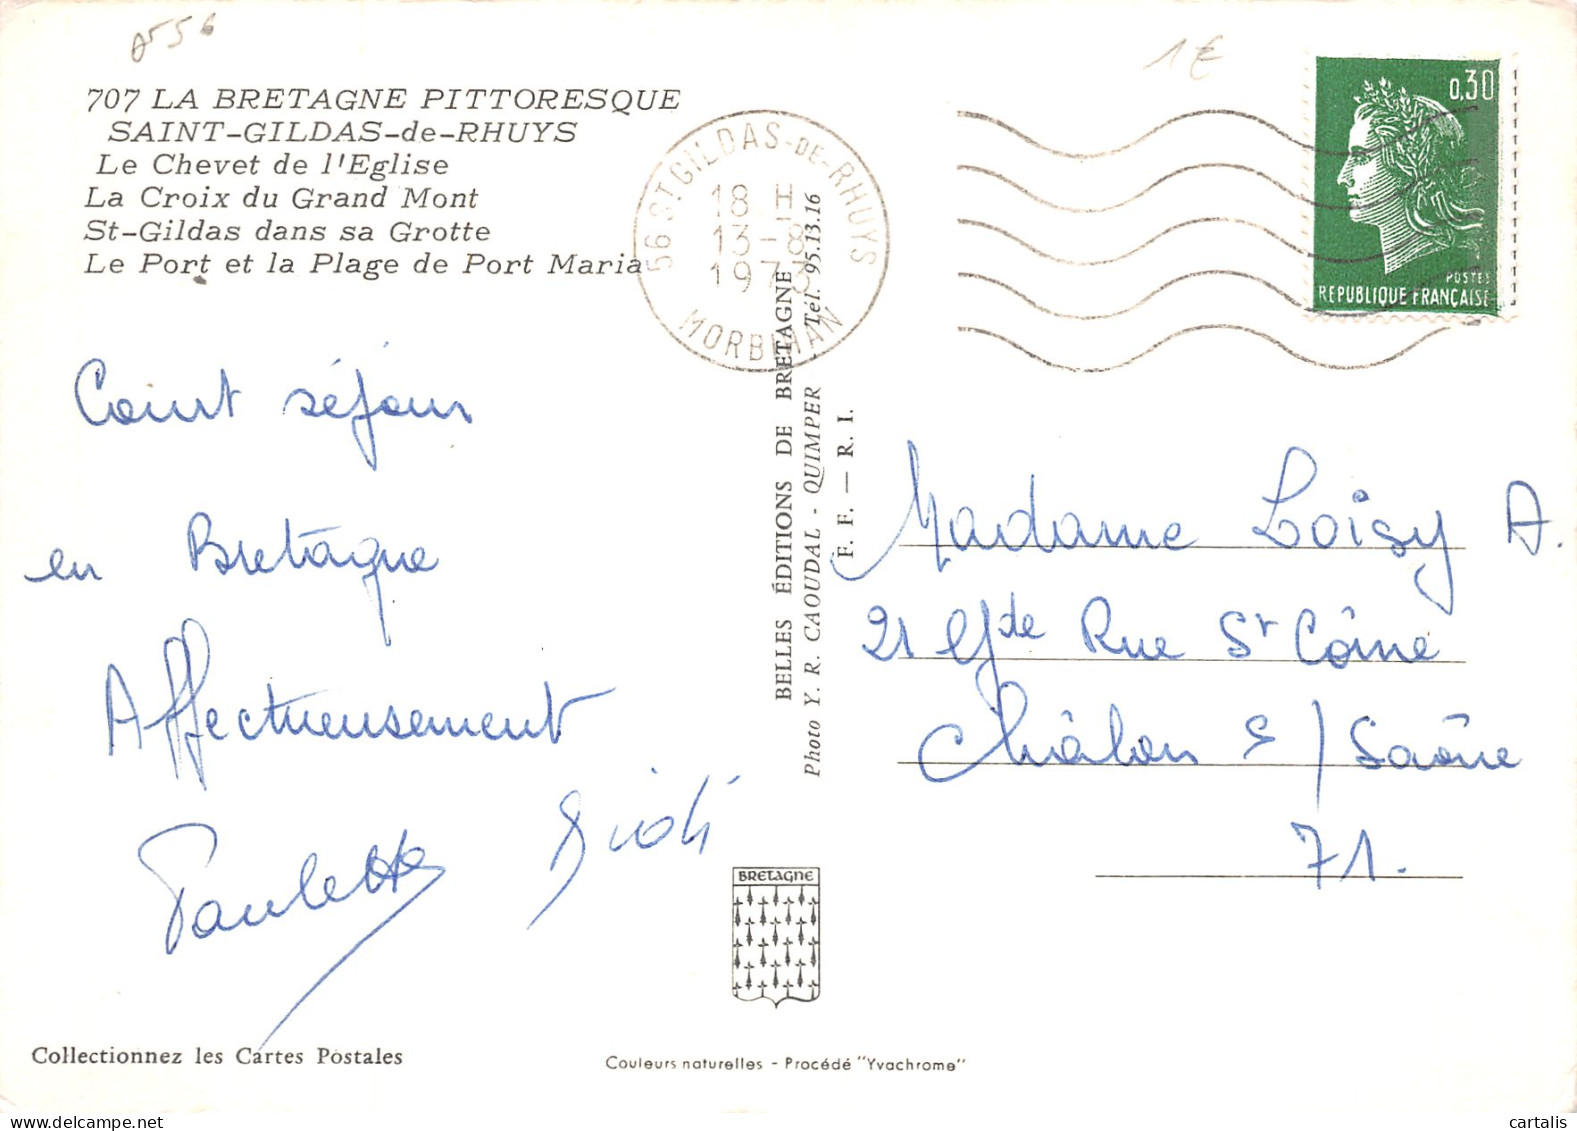 1€
707 LA BRETAGNE PITTORESQUE
SAINT-GILDAS-de-RHUYS
Le Chevet de l'Eglise
La Croix du Grand Mont
St-Gildas dans sa Grotte
Le Port et la Plage de Port Maria
56 ST GILDAS-DE-RHUYS
18 H
13-8
1973
MORBIHAN
0,30
POSTES
REPUBLIQUE FRANÇAISE
Court séjour
en Bretagne
Affectueusement
Paulette
BELLES ÉDITIONS DE BRETAGNE
Photo Y. R. CAOUDAL - QUIMPER Tél. 95.13.16
F. F. — R. I.
Madame Loisy A.
21 Gde Rue St Côme
Châlon s/Saône
71.
BRETAGNE
Collectionnez les Cartes Postales
Couleurs naturelles - Procédé "Yvachrome"
cartalis